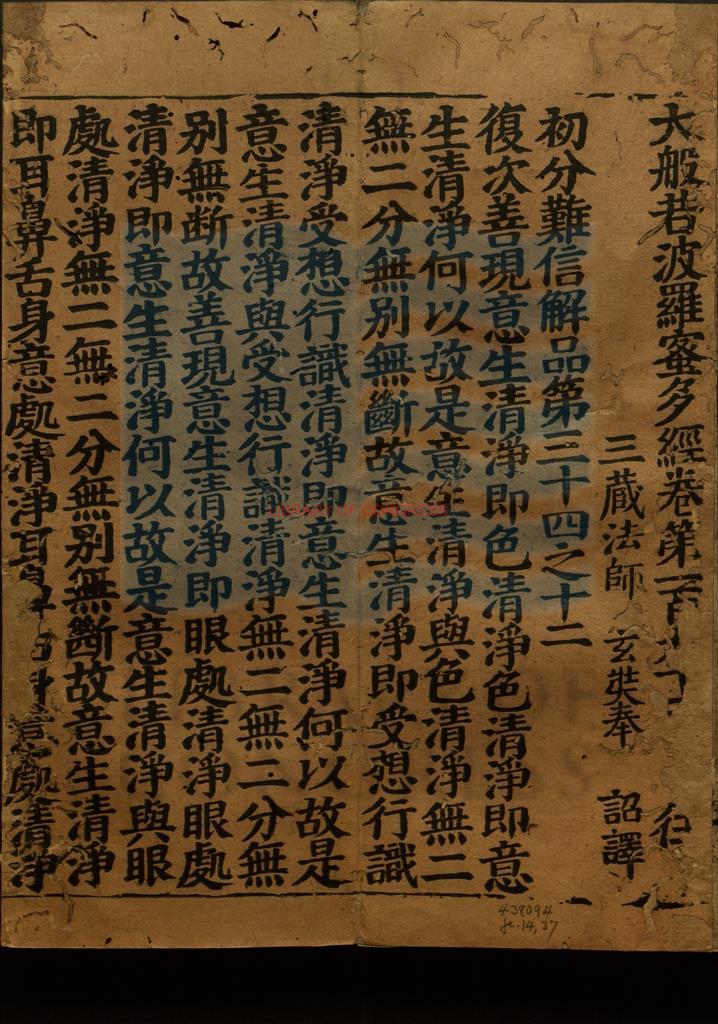 大般若波羅蜜多經卷第一百九
三蔵法師 玄奘奉 詔譯
初分難信解品第三十四之十二
復次善現意生清淨即色清淨色清淨即意
生清淨何以故是意生清淨與色清淨無二
無二分無別無斷故意生清淨即受想行識
清淨受想行識清淨即意生清淨何以故是
意生清淨與受想行識清淨無二無二分無
别無断故善現意生清淨即眼處清淨眼處
清淨即意生清淨何以故是意生清淨與眼
處清淨無二無二分無别無斷故意生清淨
即耳鼻舌身意處清淨耳鼻舌身意處清淨
LIBRARY OF CONGRESS
438094
Je. 14, 37